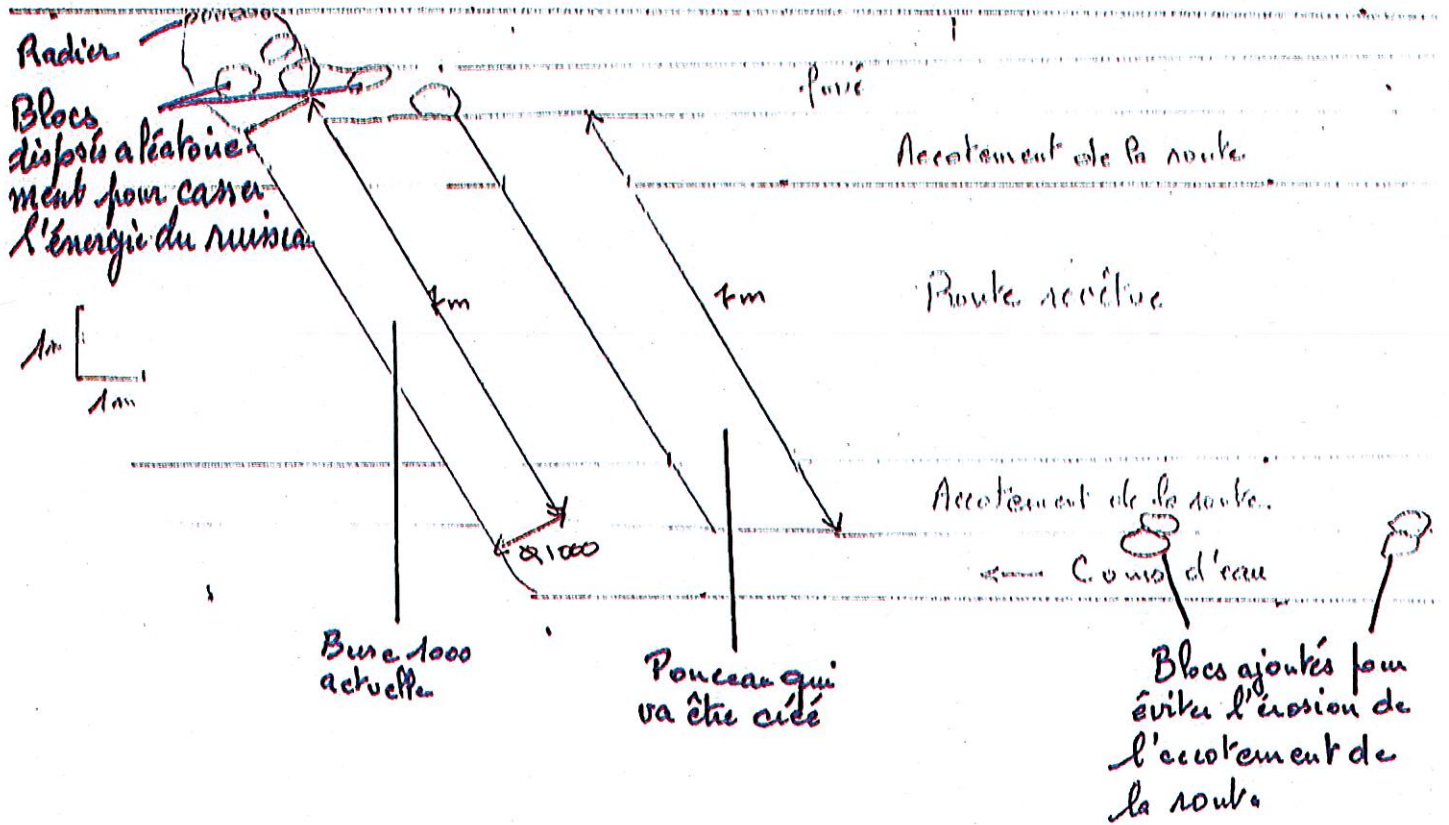 Radier
Blocs
disposés aléatoire-
ment pour casser
l'énergie du ruisseau
Accotement de la route
7m
7m
Route revêtue
1m
1m
Accotement de la route.
Ø1000
← Cours d'eau
Buse 1000
actuelle
Ponceau qui
va être créé
Blocs ajoutés pour
éviter l'érosion de
l'accotement de
la route